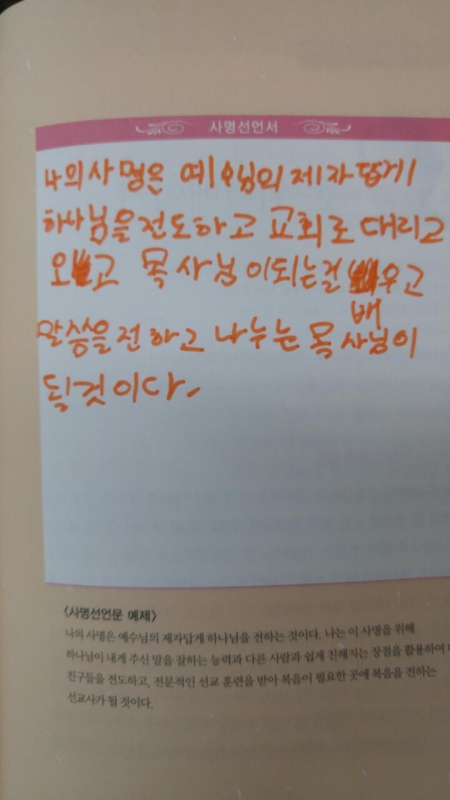 사명선언서
나의 사명은 예수님의 제자답게
하나님을 전도하고 교회로 대리고
오고 목사님이되는걸 배우고
말씀을 전하고 나누는 목사님이
될것이다.
<사명선언문 예제>
나의 사명은 예수님의 제자답게 하나님을 전하는 것이다. 나는 이 사명을 위해
하나님이 내게 주신 말을 잘하는 능력과 다른 사람과 쉽게 친해지는 장점을 활용하여
친구들을 전도하고, 전문적인 선교 훈련을 받아 복음이 필요한 곳에 복음을 전하는
선교사가 될 것이다.